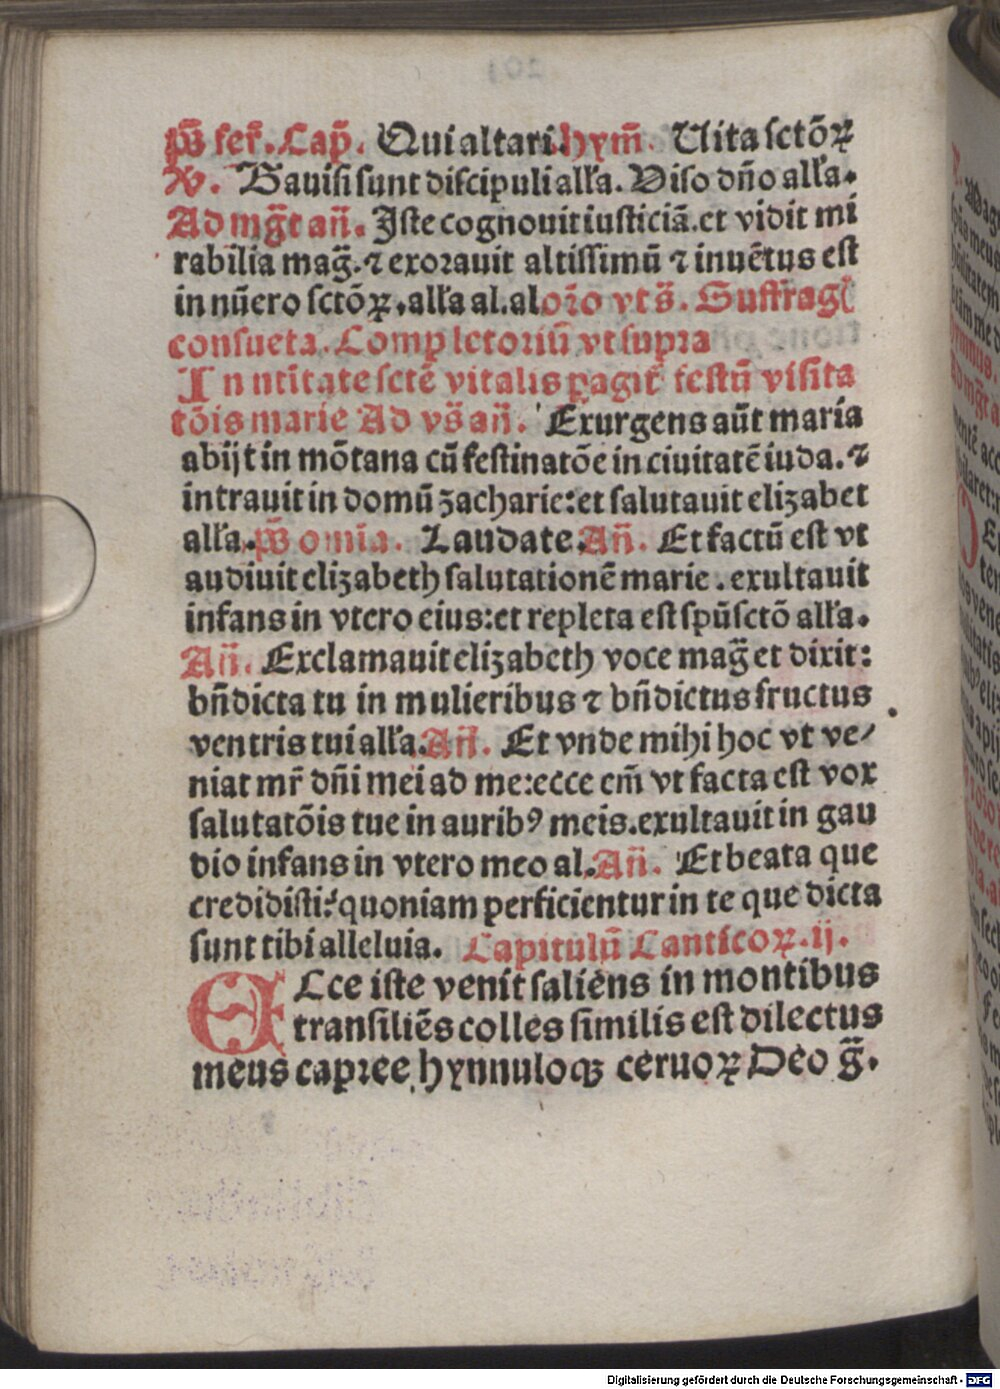 p̄s fer̄. Cap̄. Qui altari. hym̄. Uita sctōꝝ
V. Gauisi sunt discipuli all'a. Viso dn̄o all'a.
Ad mg̅t an̄. Iste cognouit iusticiā. et vidit mi
rabilia mag̅. ⁊ exorauit altissimū ⁊ inuētus est
in nūero sctōꝝ. all'a al. al or̄o vt s̄. Suffrag
consueta. Completoriū vt supra
In ntītate sctē vitalis ꝑagit̄ festū visita
tōis marie Ad vs̄ an̄. Exurgens aūt maria
abijt in mōtana cū festinatōe in ciuitatē iuda. ⁊
intrauit in domū zacharie: et salutauit elizabet
all'a. p̄s om̄ia. Laudate. An̄. Et factū est vt
audiuit elizabeth salutationē marie. exultauit
infans in vtero eius: et repleta est spū sctō all'a.
An̄. Exclamauit elizabeth voce mag̅ et dixit:
bn̄dicta tu in mulieribus ⁊ bn̄dictus fructus
ventris tui all'a. An̄. Et vnde mihi hoc vt ve/
niat mr̄ dn̄i mei ad me: ecce em̄ vt facta est vox
salutatōis tue in auribꝰ meis. exultauit in gau
dio infans in vtero meo al. An̄. Et beata que
credidisti: quoniam perficientur in te que dicta
sunt tibi alleluia. Capitulū Canticoꝝ. ij.
ECce iste venit saliens in montibus
transiliēs colles similis est dilectus
meus capree hynnuloqꝫ ceruoꝝ Deo g̅.
Digitalisierung gefördert durch die Deutsche Forschungsgemeinschaft - DFG